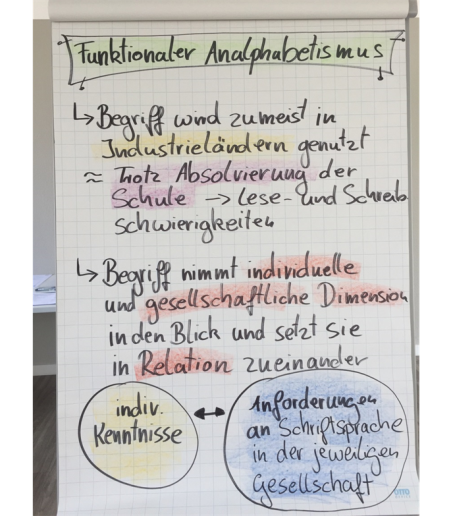 Funktionaler Analphabetismus
↳ Begriff wird zumeist in
Industrieländern genutzt
≈ Trotz Absolvierung der
Schule → Lese- und Schreib
schwierigkeiten
↳ Begriff nimmt individuelle
und gesellschaftliche Dimension
in den Blick und setzt sie
in Relation zueinander
indiv.
Kenntnisse
↔
Anforderungen
an Schriftsprache
in der jeweiligen
Gesellschaft
OTTO